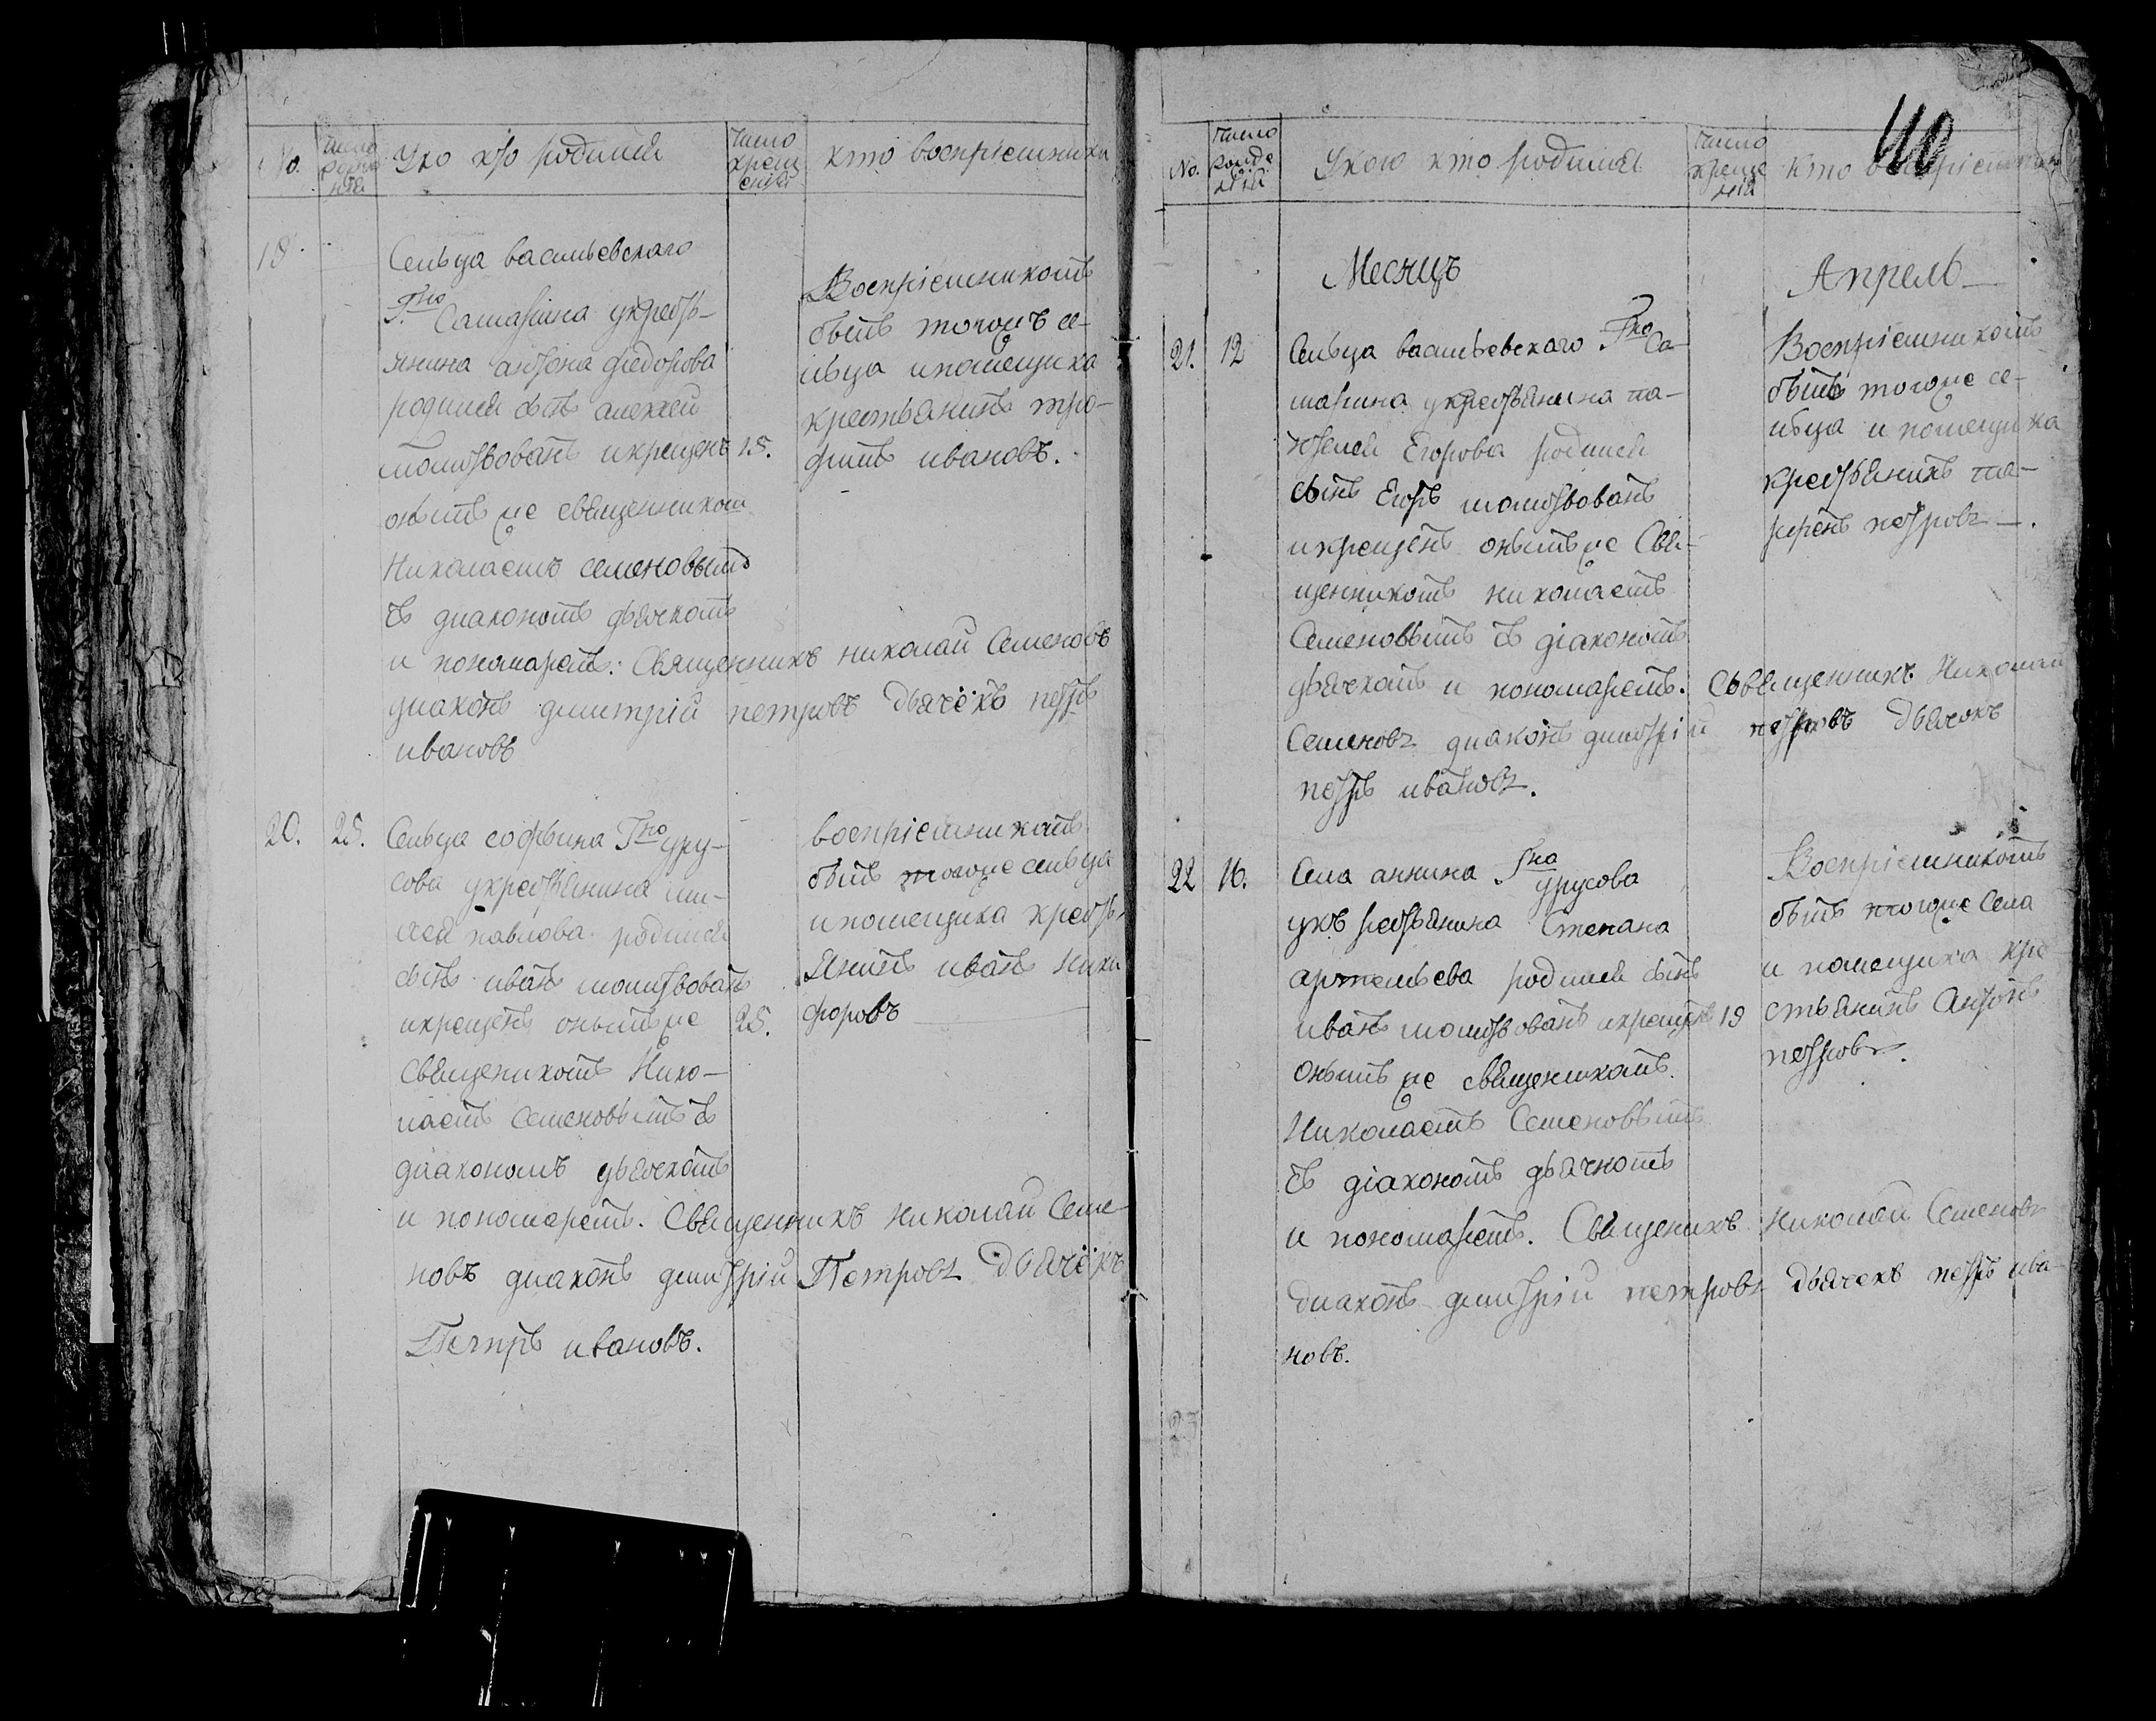 No. число рожде нїя У ко кто родился число крещ енїя кто воспрїемники
19
Сельца васильевского
Гна Самарина укресть-
янина антона федорова
родился сынъ алексей
молитвованъ икрещенъ 15.
онымъ же священником
Николаемъ семеновымъ
съ диаконом дьячкомъ
и пономаремъ: Священникъ николай Семеновъ
диаконъ димитрїй петровъ дьячёкъ петръ
ивановъ
Воспрїемникомъ
былъ тогожъ се-
льца ипомещика
крестьянинъ тро-
фимъ ивановъ.
20. 25. Сельца софьина Гна уру-
сова укрестьянина
павлова родился
сынъ иванъ молитвованъ
икрещенъ онымъже 25.
Священикомъ Нико-
лаемъ Семеновымъ съ
диакономъ дьячкомъ
и пономаремъ. Священникъ николай Семе-
новъ диаконъ димитрїй Петровъ Дьячёкъ
Петръ ивановъ.
воспрїемникомъ
былъ тогоже сельца
ипомещика кресть-
янинъ иванъ ники
форовъ
40
No. число рожде нїя У кого кто родился число креще нїя кто воспрїемники
Месяцъ Апрель
21. 12 Сельца васильевского Гна Са-
марина укрестьянина па-
Егорова родился
сынъ Егоръ молитвованъ
икрещенъ онымъже Свя-
щенникомъ николаемъ
Семеновымъ съ дїакономъ
дьячкомъ и пономаремъ. Священникъ Николай
Семеновъ диаконъ димитрїй петровъ дьячокъ
петръ ивановъ.
Воспрїемникомъ
былъ тогоже се-
льца и помещика
крестьянинъ ла-
петровъ.
22 16. Села аннина Гна урусова
укъ рестьянина Степана
артемьева родился сынъ
иванъ молитвованъ икрещенъ 19
онымъ же священикомъ
Николаемъ Семеновымъ
съ дїакономъ дьячкомъ
и пономаремъ. Священикъ николай Семеновъ
диаконъ димитрїй петровъ дьячекъ петръ ива-
новъ.
Воспрїемникомъ
былъ тогоже Села
и помещика кре
стьянинъ Антонъ
петровъ.
23